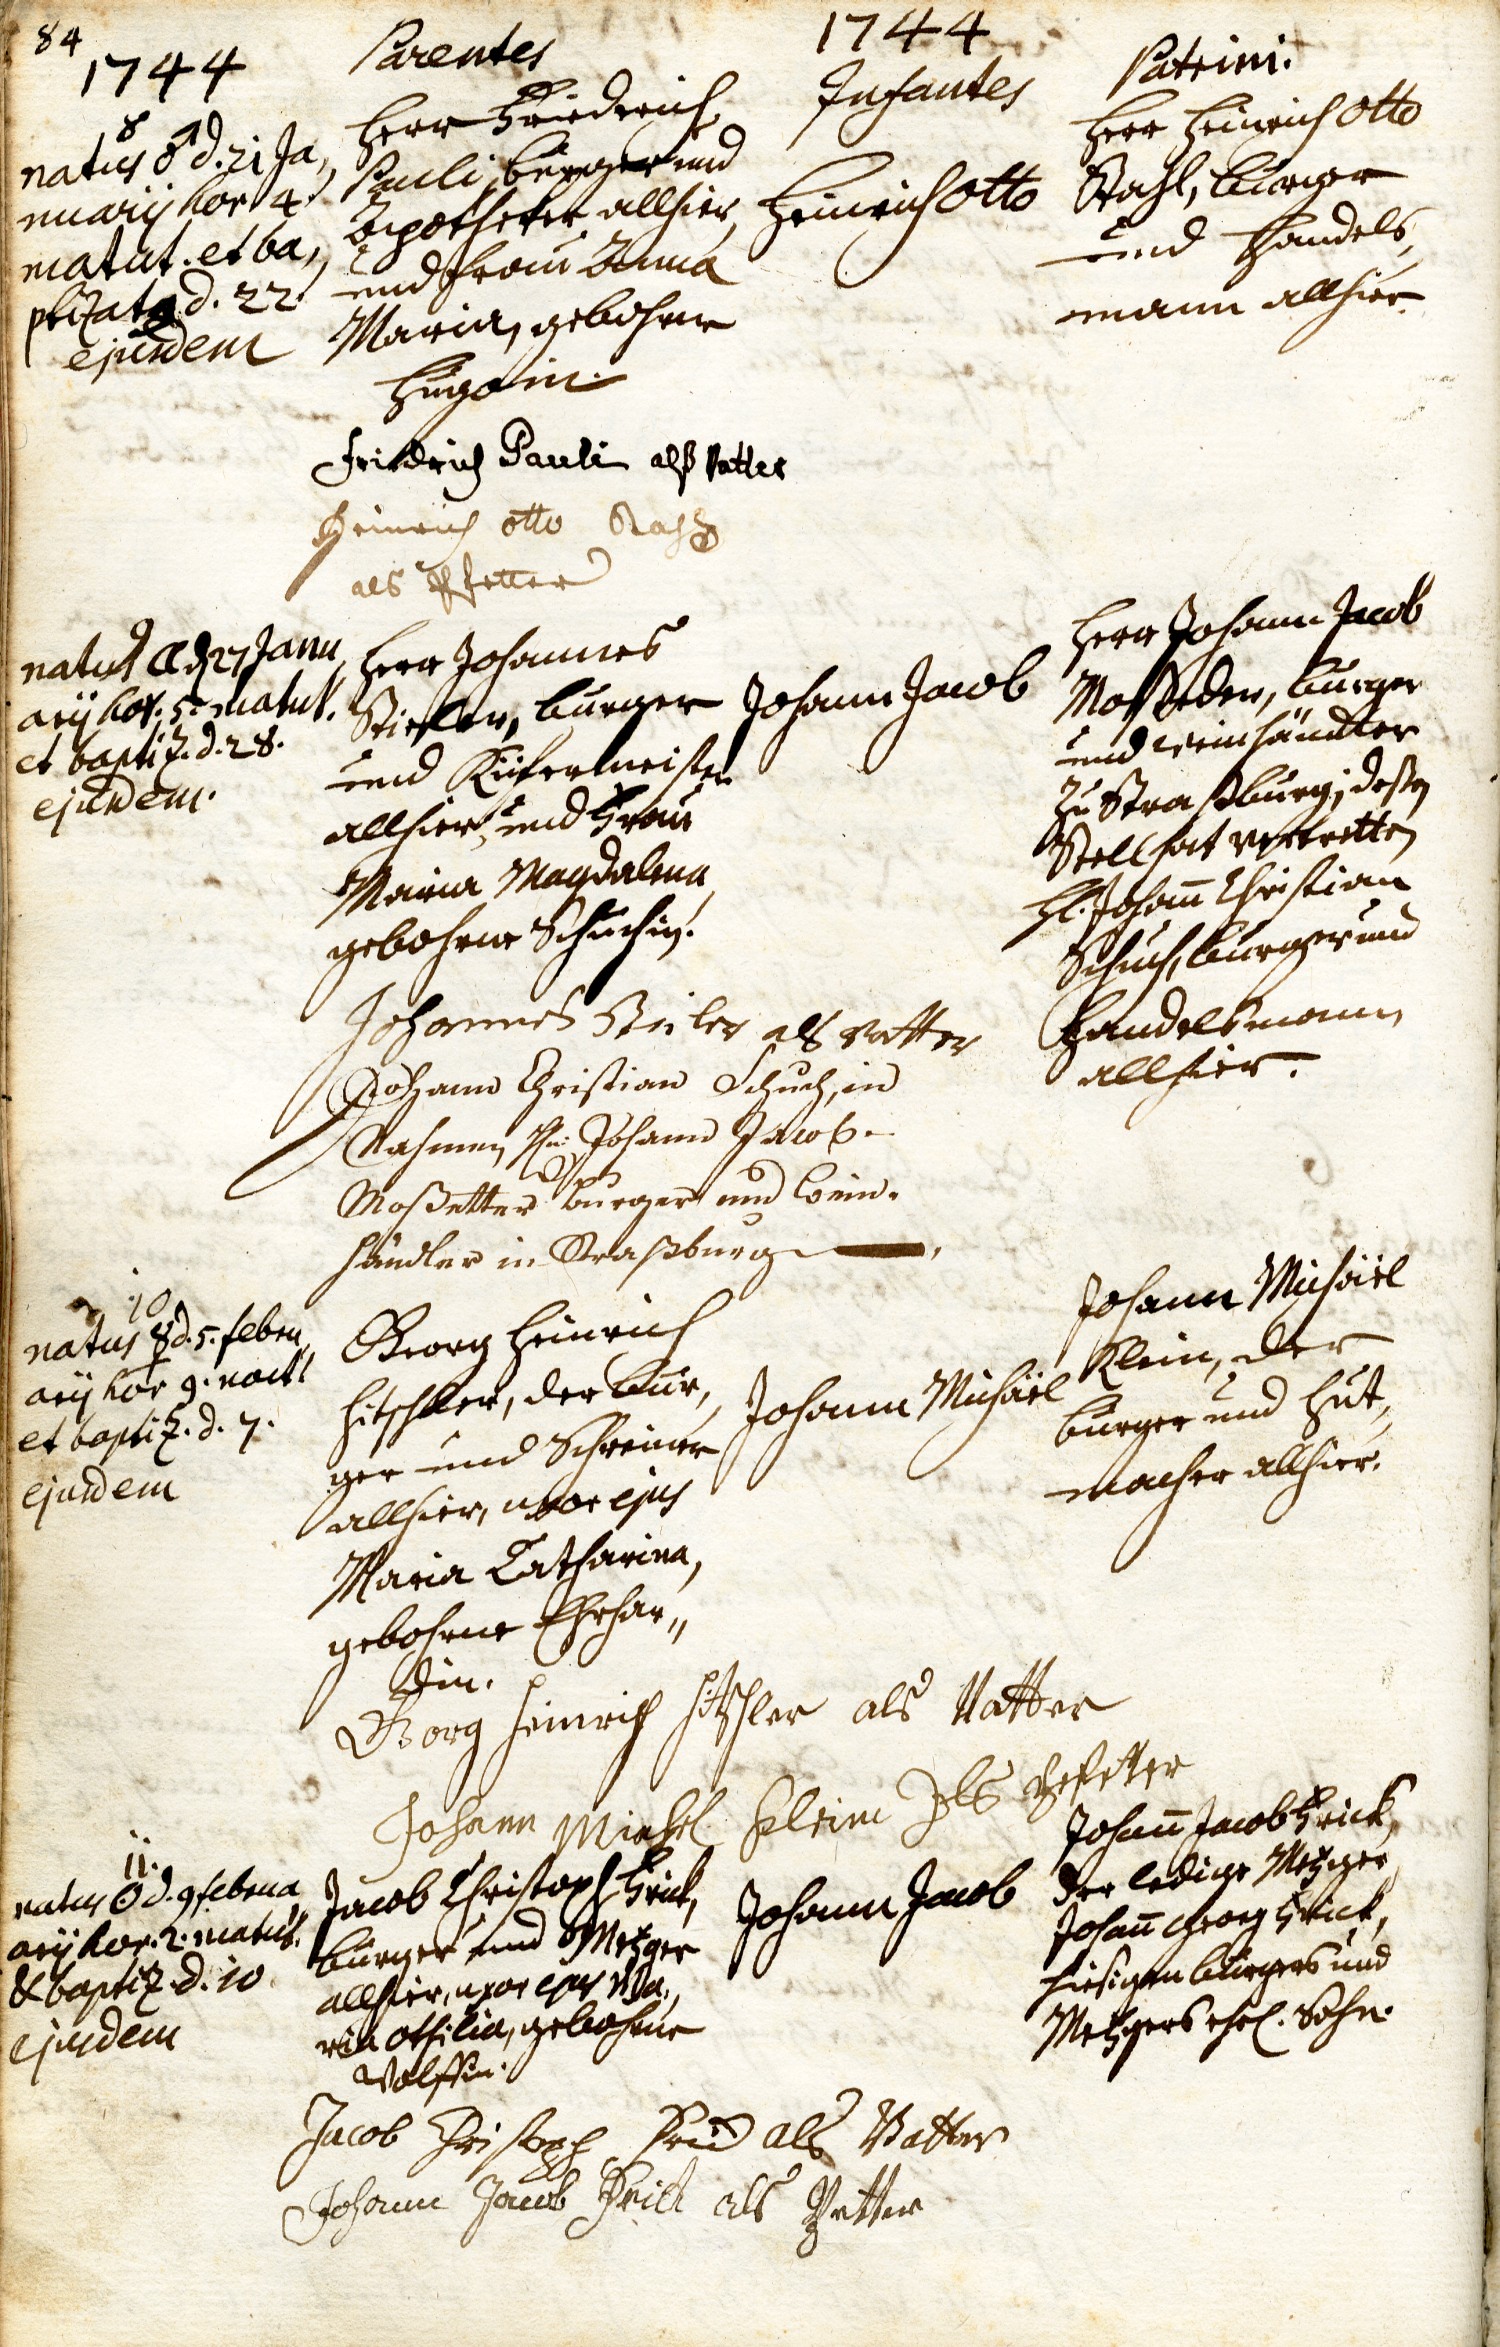 84
1744
Parentes
1744
Infantes
Patrini.
8
natus ♂ d. 21 Ja,
nuarij hor 4.
matut. et ba,
ptizatq d. 22.
ejusdem
Herr Friederich
Pauli, burger und
Apotheker allhier,
und Frau Anna
Maria, gebohrne
Hugoin.
Heinrich Otto
Herr Heinrich Otto
Stahl, burger
und Handels,
mann allhier.
Friedrich Pauli alß Vatter
Heinrich Otto Stahl
als Pfetter
9
natus ☾ d. 27 Janu,
arij hor. 5. matut.
et baptiz. d. 28.
ejusdem.
Herr Johannes
Stieler, burger
und Küfermeister
allhier, und Frau
Maria Magdalena,
gebohrne Schuchin.
Johann Jacob
Herr Johann Jacob
Moßeder, burger
und weinhändler
zu Straßburg, deßen
Stell hat vertretten
H. Johañ Christian
Schuch, burger und
Handelsmann
allhier.
Johannes Stieler als vatter
Johann Christian Schuch, in
Nahmen Hn: Johann Jacob
Moßetter burger und wein-
händler in Straßburg
10
natus ☿ d. 5. febru,
arij hor 9. noct.
et baptiz. d. 7.
ejusdem
Georg Heinrich
Hitschler, der bur,
ger und Schreiner
allhier, uxor ejus
Maria Catharina,
gebohrne Ehrhar,,
din.
Johann Michäel
Johann Michäel
Klein, der
burger und Hut,
macher allhier.
Georg Heinrich Hitschler als Vatter
Johann Michel Klein Als Pfetter
11.
natus ☉ d. 9 februa,
arij hor. 2. matut.
& baptiz. d. 10
ejusdem
Jacob Christoph Frick,
burger und Metzger
allhier, uxor ejus Ma,
ria Othilia, gebohrne
Wolffin.
Johann Jacob
Johañ Jacob Frick,
der ledige Metzger,
Johañ Georg Frick,
hiesigen burgers und
Metzgers ehel. Sohn.
Jacob Christoph Frick als Vatter
Johann Jacob Frick als Petter